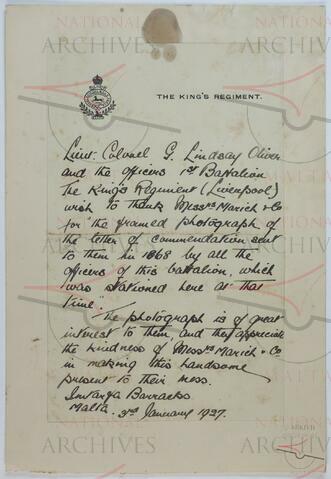 NATIONAL
ARCHIVES
THE KING'S REGIMENT.
Lieut: Colonel G. Lindsay Oliver
and the officers 1st Battalion
The King's Regiment (Liverpool)
wish to thank Messrs Marich & Co
for "the framed photograph of
the letter of commendation sent
to them in 1868 by all the
officers of this battalion, which
was stationed here at that
time".
The photograph is of great
interest to them, and they appreciate
the kindness of Messrs Marich & Co
in making this handsome
present to their mess.
Imtarfa Barracks
Malta. 3rd January 1927.
NATIONAL
ARCHIVES